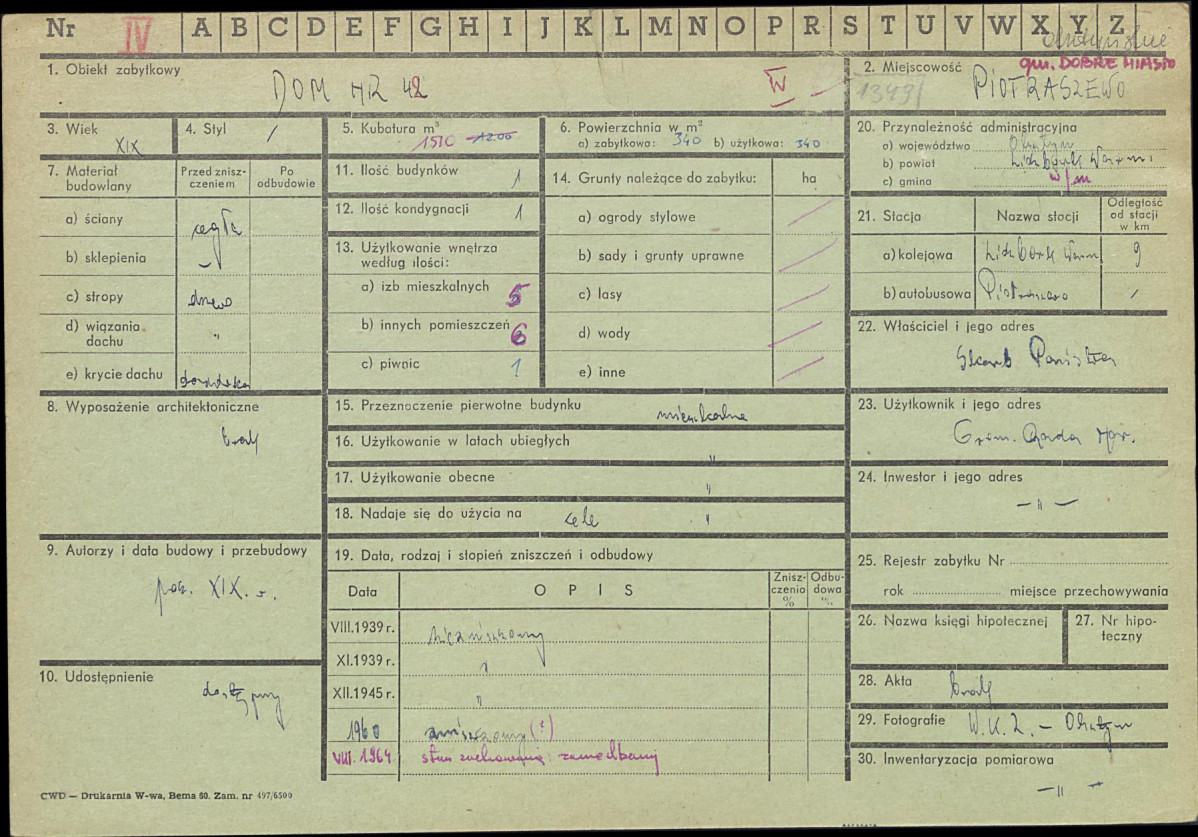 Nr IV A B C D E F G H I J K L M N O P R S T U V W X Y Z
olsztyńskie
gm. DOBRE MIASTO
1. Obiekt zabytkowy
DOM NR 42
W
2. Miejscowość
1349/
PIOTRASZEWO
3. Wiek
XIX
4. Styl
/
5. Kubatura m³
1510 1200
6. Powierzchnia w m²
a) zabytkowa: 340 b) użytkowa: 340
20. Przynależność administracyjna
a) województwo Olsztyn
b) powiat Lidzbark Warm.
c) gmina w/m
7. Materiał budowlany
Przed znisz-
czeniem
Po
odbudowie
a) ściany cegła
b) sklepienia –
c) stropy drewo
d) wiązania
dachu "
e) krycie dachu dachówka
11. Ilość budynków 1
12. Ilość kondygnacji 1
13. Użytkowanie wnętrza
według ilości:
a) izb mieszkalnych 5
b) innych pomieszczeń 6
c) piwnic 1
14. Grunty należące do zabytku: ha
a) ogrody stylowe /
b) sady i grunty uprawne /
c) lasy /
d) wody /
e) inne /
21. Stacja
Nazwa stacji
Odległość
od stacji
w km
a) kolejowa Lidzbark Warm 9
b) autobusowa Piotraszewo /
22. Właściciel i jego adres
Skarb Państwa
8. Wyposażenie architektoniczne
brak
15. Przeznaczenie pierwotne budynku mieszkalne
16. Użytkowanie w latach ubiegłych "
17. Użytkowanie obecne "
18. Nadaje się do użycia na cele "
23. Użytkownik i jego adres
Grom. Rada Nar.
24. Inwestor i jego adres
— " —
9. Autorzy i data budowy i przebudowy
poł. XIX. w.
19. Data, rodzaj i stopień zniszczeń i odbudowy
Data
OPIS
Znisz-
czenia
%
Odbu-
dowa
%
VIII.1939 r.
XI.1939 r. "
XII.1945 r. "
1960 zniszczony (?)
VIII. 1964 stan zachowania: zaniedbany
25. Rejestr zabytku Nr
rok miejsce przechowywania
26. Nazwa księgi hipotecznej
27. Nr hipo-
teczny
10. Udostępnienie
dostępny
28. Akta brak
29. Fotografie W.K.Z. – Olsztyn
30. Inwentaryzacja pomiarowa
— " —
CWD — Drukarnia W-wa, Bema 60. Zam. nr 497/6500